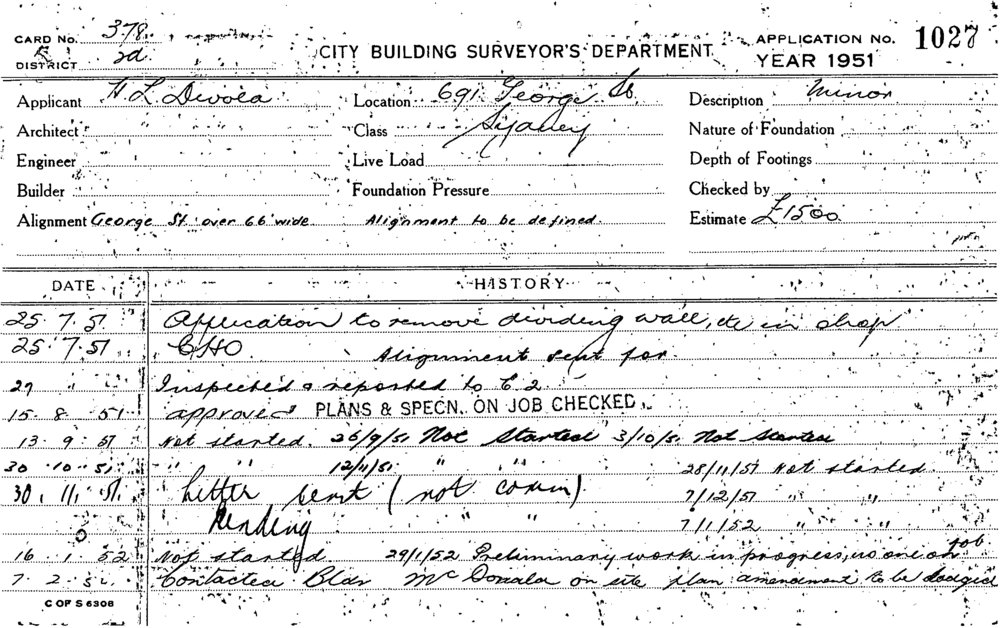 CARD No. 378
DISTRICT 2d
CITY BUILDING SURVEYOR'S DEPARTMENT
APPLICATION No. 1027
YEAR 1951
Applicant H. L. Location 691 George St. Description Minor
Architect " Class Sydney Nature of Foundation
Engineer Live Load Depth of Footings
Builder Foundation Pressure Checked by
Alignment George St. over 66' wide. Alignment to be defined. Estimate £1500
DATE HISTORY
25.7.51 Application to remove dividing wall, etc in shop
25.7.51 CHO Alignment sent for.
27 " Inspected & reported to C 2
15.8.51 approved PLANS & SPECN. ON JOB CHECKED.
13.9.51 Not started. 26/9/51 Not Started 3/10/51 Not Started
30.10.51 " " 12/11/51 " " 28/11/51 Not started.
30.11.51. Letter sent (not comm) 7/12/51 " "
Pending " " 7/1/52 " "
16.1.52 Not started 29/1/52 Preliminary work in progress, no one on job
7.2.52 Contacted Bldr McDonald on site plan amendment to be lodged
C OF S 6308